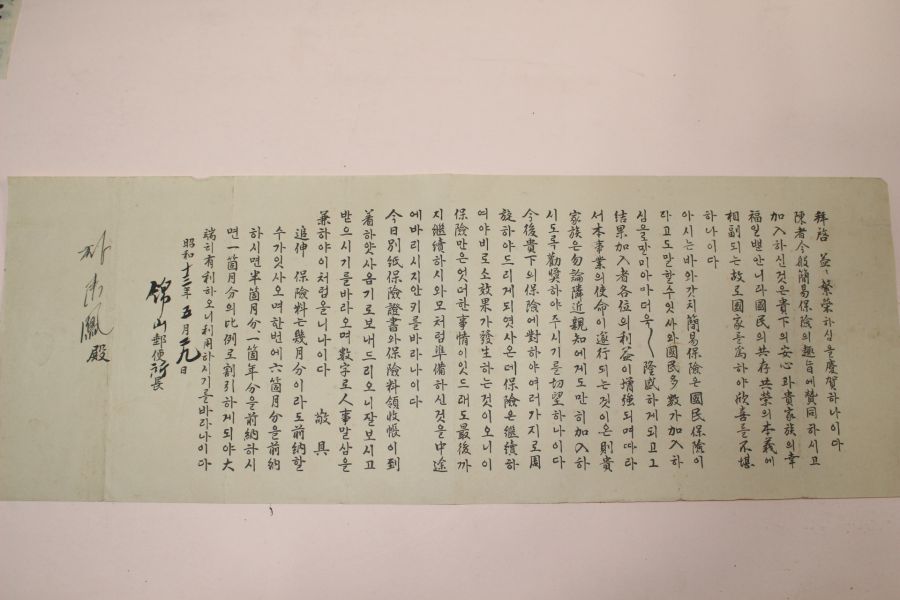 拜啓 益々繁榮하심을慶賀하나이다
陳者今般簡易保險의趣旨에賛同하시고
加入하신것은貴下의安心과貴家族의幸
福일뿐안니라國民의共存共榮의本義에
相副되는故로國家를爲하야欣喜를不堪
하나이다
아시는바와갓치簡易保險은國民保險이
라고도말할수잇사와國民多數가加入하
심을만이아마더욱々隆盛하게되고그
結果加入者各位의利益이增强되며따라
서本事業의使命이遂行되는것이온則貴
家族은勿論隣近親知에게도만히加入하
시도록勸奬하야주시기를切望하나이다
今後貴下의保險에對하야여러가지로周
旋하야드리게되엿사온데保險은繼續하
여야비로소效果가發生하는것이오니이
保險만은엇더한事情이잇드래도最後까
지繼續하시와모처럼準備하신것을中途
에바리시지안키를바라나이다
今日別紙保險證書와保險料領收帳이到
着하얏사옵기로보내드리오니잘보시고
받으시기를바라오며數字로人事말삼을
兼하야이처럼올니나이다 敬具
追伸 保險料는幾月分이라도前納할
수가잇사오며한번에六箇月分을前納
하시면半箇月分、一箇年分을前納하시
면一箇月分의比例로割引하게되야大
端히有利하오니利用하시기를바라나이다
昭和十三年五月二九日
錦山郵便所長
鳳殿